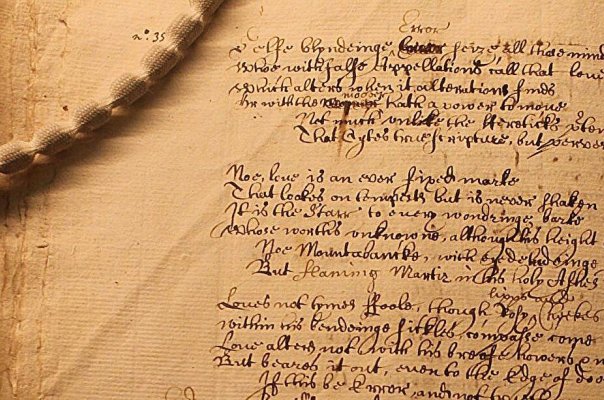 nº. 35
Error
Selfe blyndeinge seize all those mind
Whoe with false Appellations call that love
Which alters when it alterations finds
mover
Or with the hath a power to move
Not much unlike the Hereticks
That Cytes true scripture, but perver
Noe, love is an ever fixed marke
That lookes on tempests but is never shaken
It is the Starr to every wondringe barke
Whose worths unknowne, although his height
Noe Mountabancke, with eyedeludeinge
But flameing Martir in his holy Ashes
lipps and
Loves not tymes Foole, though Rosy Cheekes
within his bendeinge sickles, compasse come
Love alters not with his breefe howers
But beares it out, even to the Edge of doo
If this be Error, and not